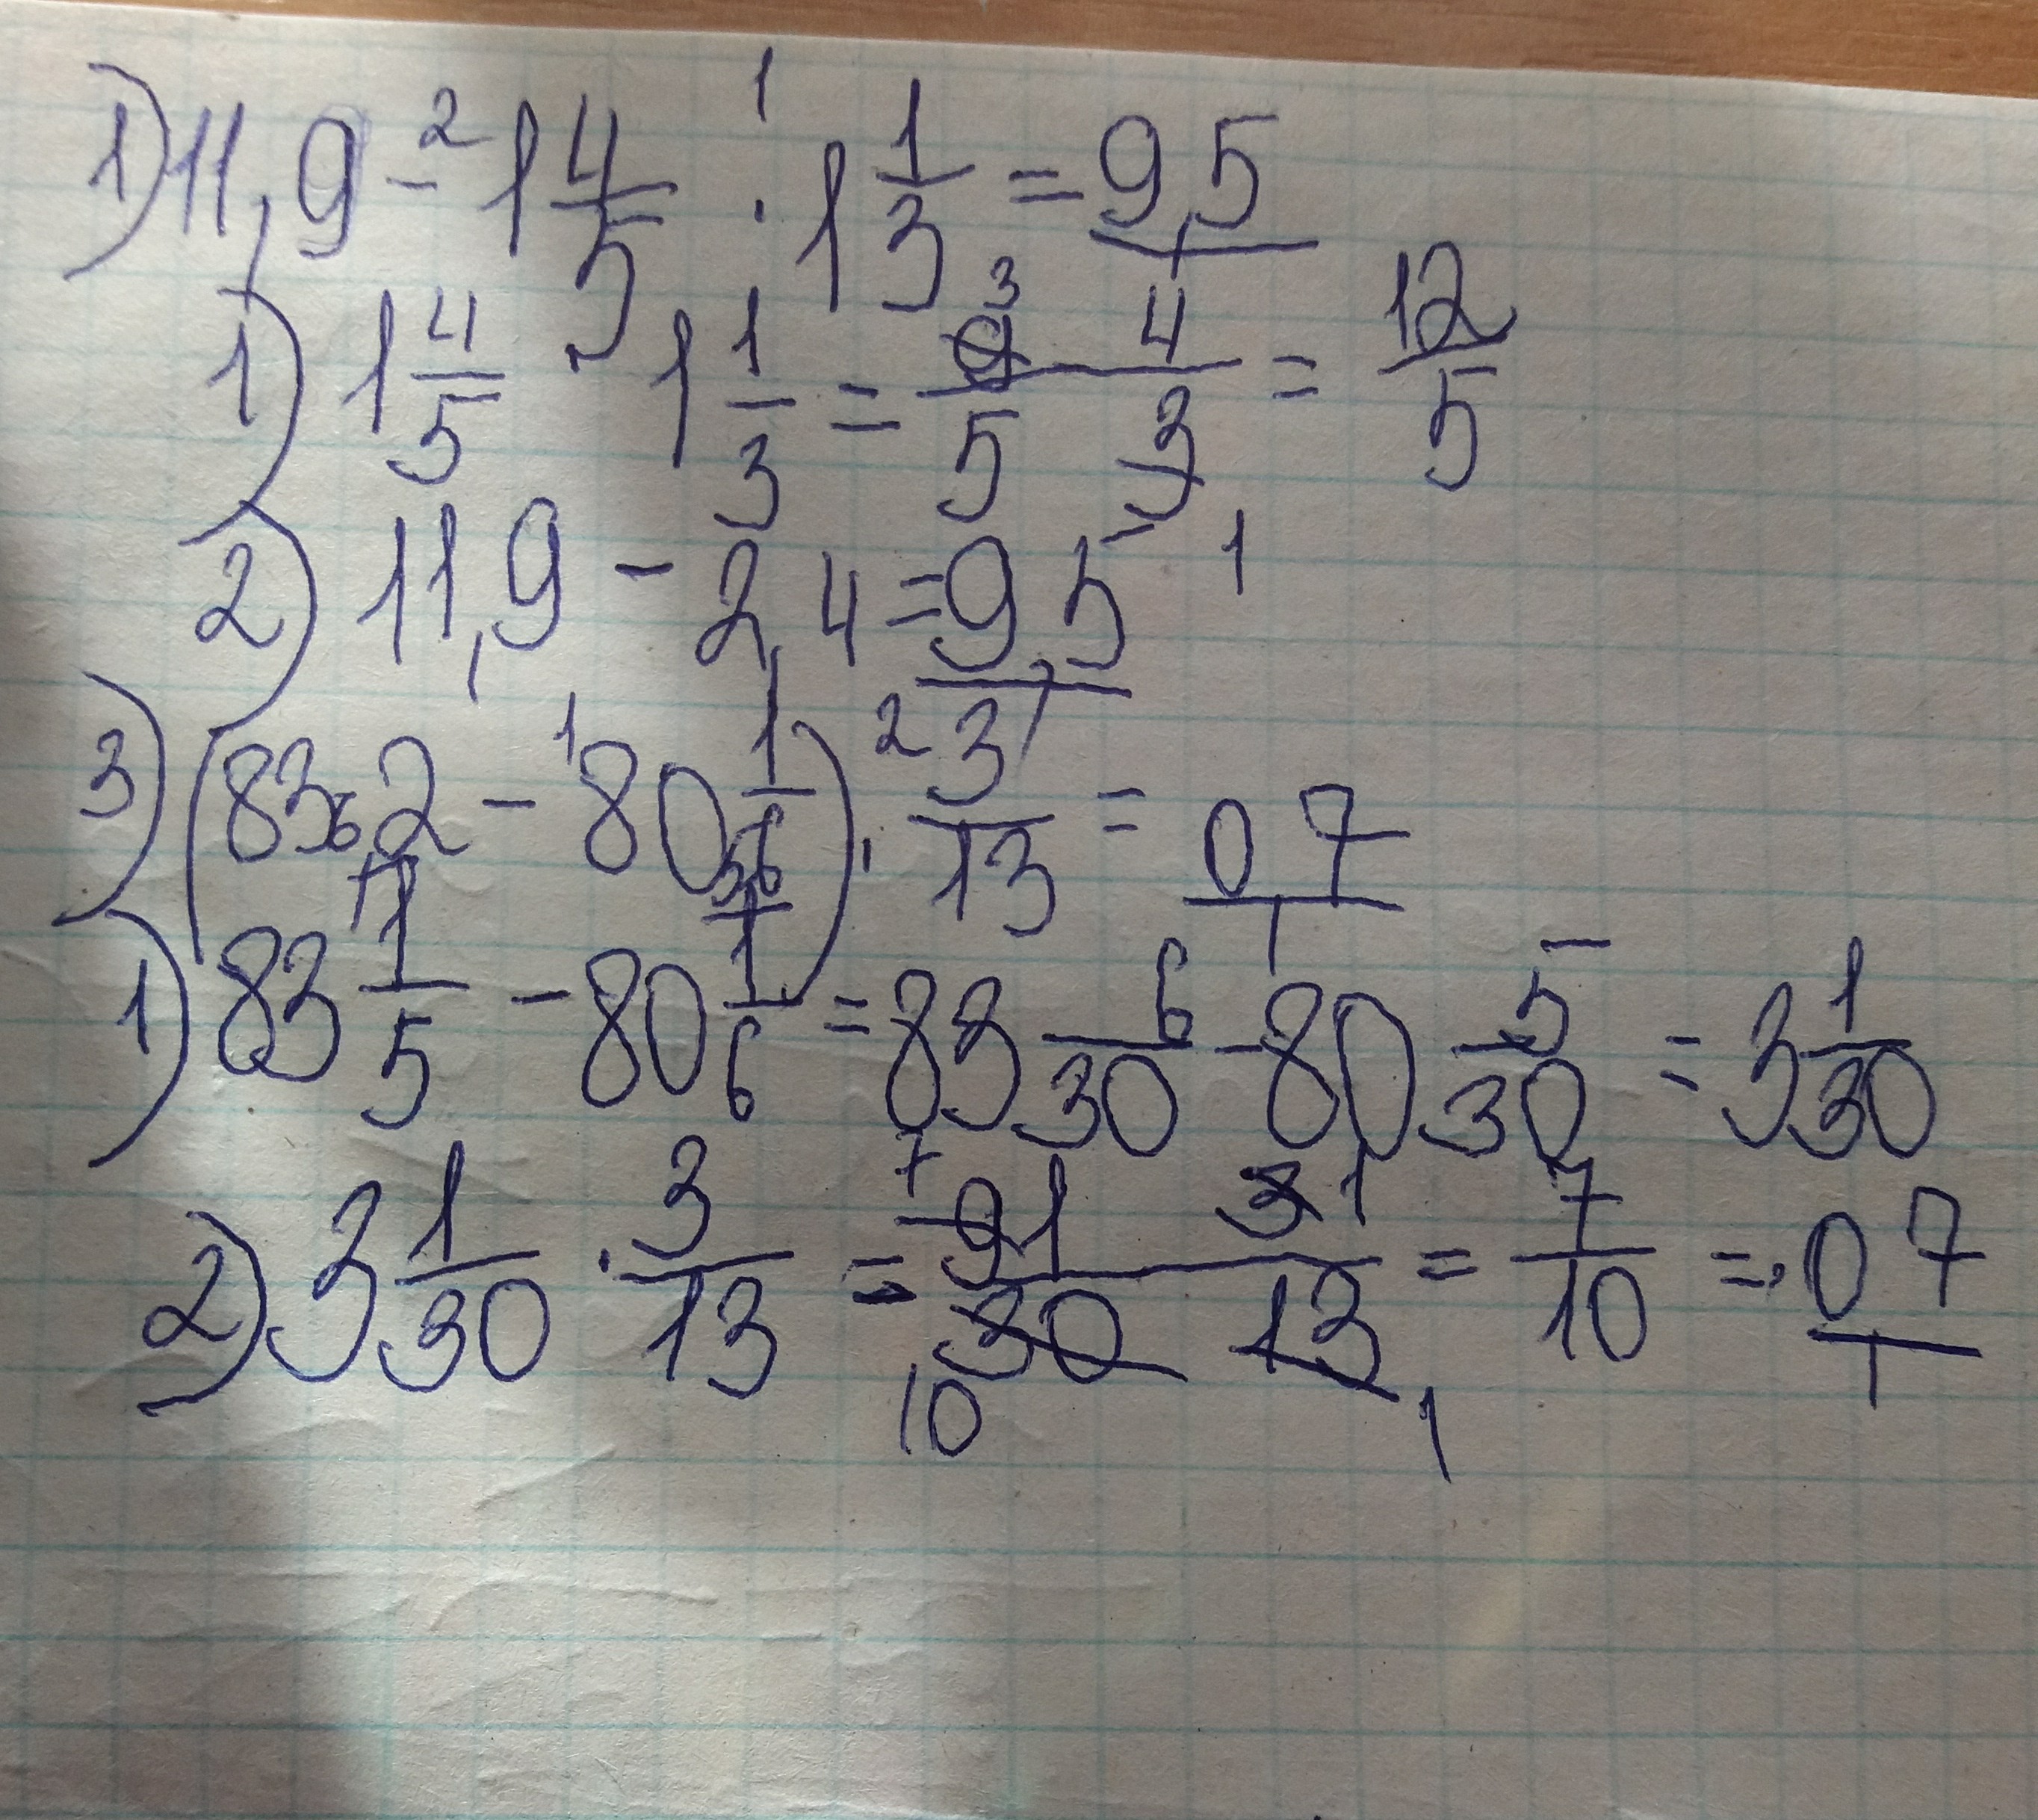 1) 11,9 - 1 4/5 · 1 1/3 = 9,5
1) 1 4/5 · 1 1/3 = 9/5 4/3 = 12/5
2) 11,9 - 2,4 = 9,5
3) (83,2 - 80 1/6) · 3/13 = 0,7
1) 83 1/5 - 80 1/6 = 83 6/30 - 80 5/30 = 3 1/30
2) 3 1/30 · 3/13 = 91/30 3/13 = 7/10 = 0,7